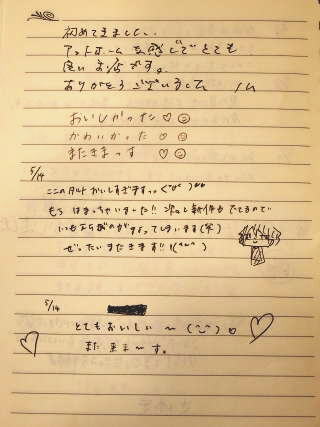 初めてきました。
アットホームな感じでとても
良いお店です。
ありがとうございました
おいしかった♡☺
かわいかった♡☺
またきまっす♡☺
5/14
ここのタルトおいしすぎますっっ
もう はまっちゃいました!! 次々と新作も でてるので
いつも
ぜったいまたきます!!
5/14
とてもおいしい〜 (^‿^)
また来ま〜す。